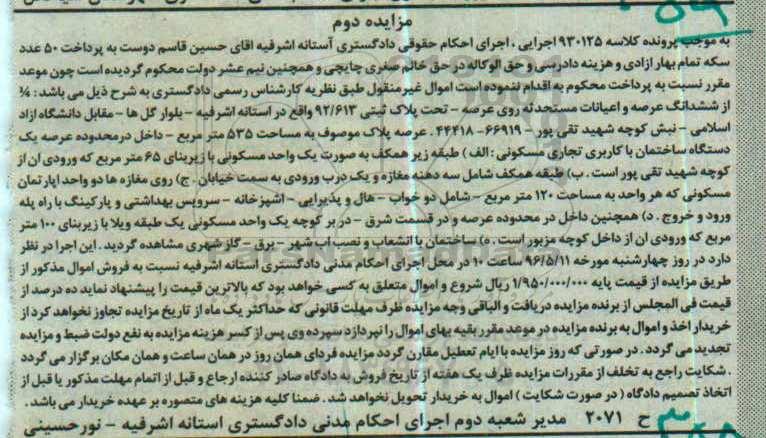 مزایده دوم
به موجب پرونده کلاسه ۹۳۰۱۲۵ اجرایی ، اجرای احکام حقوقی دادگستری آستانه اشرفیه اقای حسین قاسم دوست به پرداخت ۵۰ عدد
سکه تمام بهار ازادی و هزینه دادرسی و حق الوکاله در حق خانم صغری چایچی و همچنین نیم عشر دولت محکوم گردیده است چون موعد
مقرر نسبت به پرداخت محکوم به اقدام ننموده است اموال غیر منقول طبق نظریه کارشناس رسمی دادگستری به شرح ذیل می باشد :
از ششدانگ عرصه و اعیانات مستحدثه روی عرصه - تحت پلاک ثبتی ۹۲/۶۱۳ واقع در استانه اشرفیه - بلوار گل ها - مقابل دانشگاه ازاد
اسلامی - نبش کوچه شهید تقی پور - ۶۶۹۱۹-۴۴۴۱۸ . عرصه پلاک موصوف به مساحت ۵۳۵ متر مربع - داخل درمحدوده عرصه یک
دستگاه ساختمان با کاربری تجاری مسکونی : الف ) طبقه زیر همکف به صورت یک واحد مسکونی با زیربنای ۶۵ متر مربع که ورودی ان از
کوچه شهید تقی پور است . ب) طبقه همکف شامل سه دهنه مغازه و یک درب ورودی به سمت خیابان . ج) روی مغازه ها دو واحد اپارتمان
مسکونی که هر واحد به مساحت ۱۲۰ متر مربع - شامل دو خواب - هال و پذیرایی - اشپزخانه - سرویس بهداشتی و پارکینگ با راه پله
ورود و خروج . د) همچنین داخل در محدوده عرصه و در قسمت شرق - در بر کوچه یک واحد مسکونی یک طبقه ویلا با زیربنای ۱۰۰ متر
مربع که ورودی ان از داخل کوچه مزبور است . ه) ساختمان با انشعاب و نصب اب شهر - برق - گاز شهری مشاهده گردید . این اجرا در نظر
دارد در روز چهارشنبه مورخه ۹۶/۵/۱۱ ساعت ۱۰ در محل اجرای احکام مدنی دادگستری استانه اشرفیه نسبت به فروش اموال مذکور از
طریق مزایده از قیمت پایه ۱/۹۵۰/۰۰۰/۰۰۰ ریال شروع و اموال متعلق به کسی خواهد بود که بالاترین قیمت را پیشنهاد نماید ده درصد از
قیمت فی المجلس از برنده مزایده دریافت و الباقی وجه مزایده ظرف مهلت قانونی که حداکثر یک ماه از تاریخ مزایده تجاوز نخواهد کرد از
خریدار اخذ و اموال به برنده مزایده در موعد مقرر بقیه بهای اموال را نپردازد سپرده وی پس از کسر هزینه مزایده به نفع دولت ضبط و مزایده
تجدید می گردد . در صورتی که روز مزایده با ایام تعطیل مقارن گردد مزایده فردای همان روز در همان ساعت و همان مکان برگزار می گردد
. شکایت راجع به تخلف از مقررات مزایده ظرف یک هفته از تاریخ فروش به دادگاه صادر کننده ارجاع و قبل از اتمام مهلت مذکور یا قبل از
اتخاذ تصمیم دادگاه ( در صورت شکایت ) اموال به خریدار تحویل نخواهد شد . ضمنا کلیه هزینه های متصوره بر عهده خریدار می باشد .
ح ۲۰۷۱ مدیر شعبه دوم اجرای احکام مدنی دادگستری استانه اشرفیه - نورحسینی